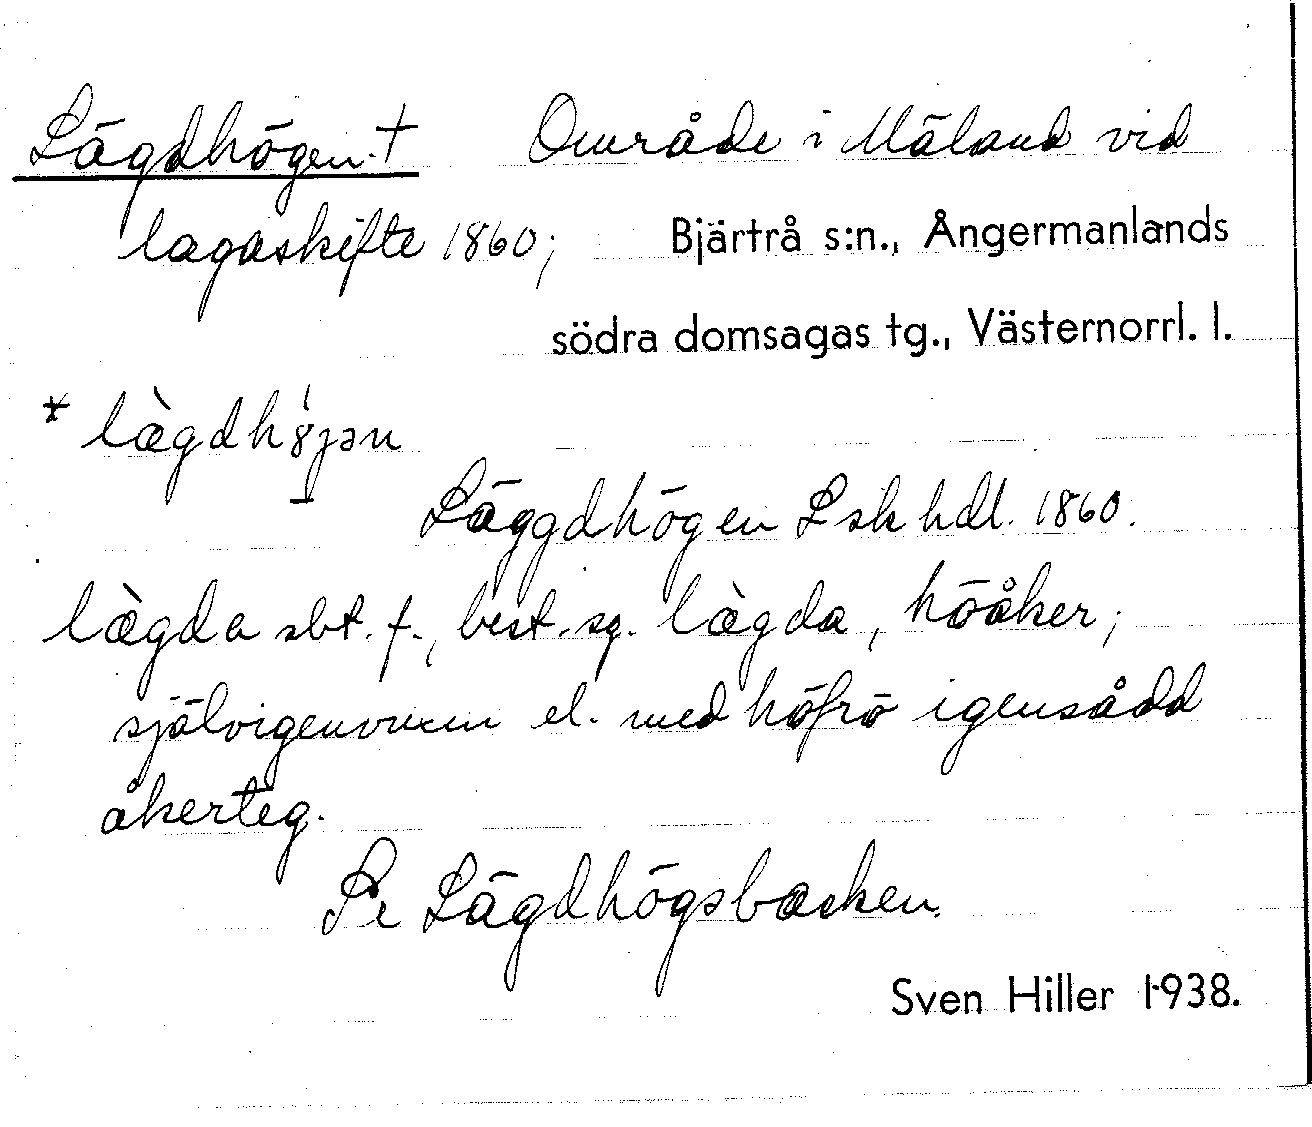 Lägdhögen † Område i Mäland vid
lagaskifte 1860; Bjärtrå s:n., Ångermanlands
södra domsagas tg., Västernorrl. l.
* læ̀gdhö́jən
Läggdhögen Lsk hdl. 1860.
læ̀gda sbt. f., best. sg. læ̀gda, höåker;
självigenvuxen el. med höfrö igensådd
åkerteg.
Se Lägdhögsbacken.
Sven Hiller 1938.